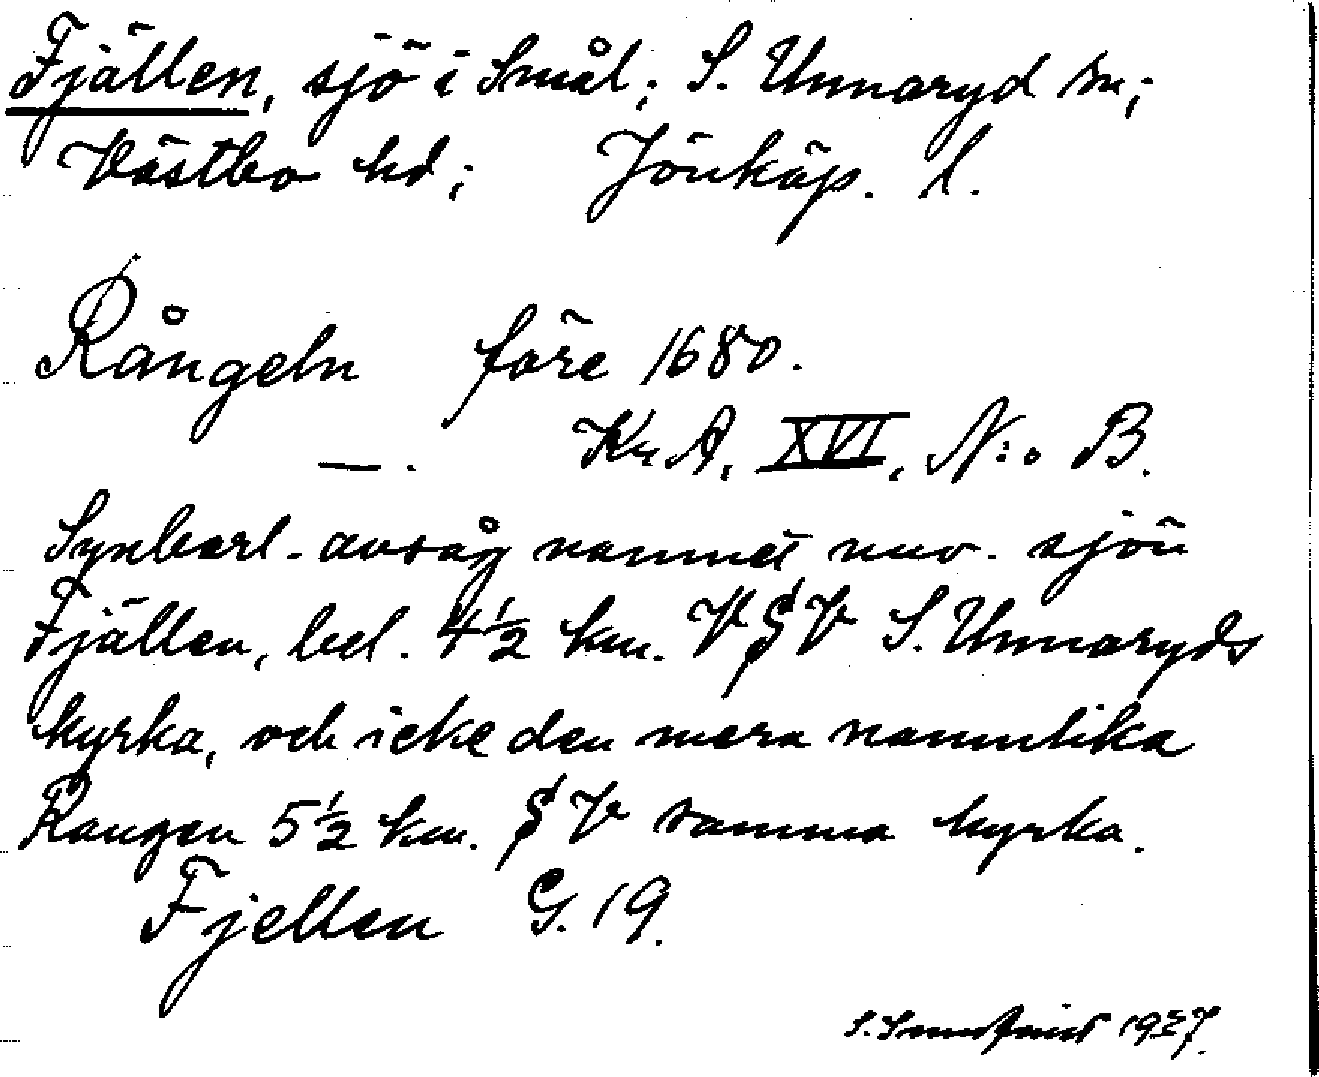 Fjällen, sjö i Smål; S. Unnaryd sn;
Västbo hd; Jönköp. l.
Rångeln före 1680.
—. KrA, XVI, N:o B.
Synbarl. avsåg namnet nuv. sjön
Fjällen, bel. 4½ km. V§V S. Unnaryds
kyrka, och icke den mera namnlika
Rangen 5½ km. §V samma kyrka.
Fjellen G. 19.
1927.